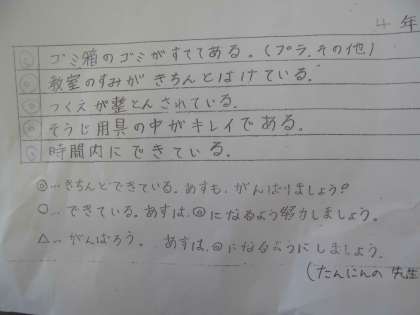 4年
◎ ゴミ箱のゴミがすててある。(プラ、その他)
◎ 教室のすみがきちんとはけている。
◎ つくえが整とんされている。
◎ そうじ用具の中がキレイである。
◎ 時間内にできている。
◎…きちんとできている。あすも、がんばりましょう?
○…できている。あすは、◎になるよう努力しましょう。
△…がんばろう。あすは、◎になるようにしましょう。
(たんにんの先生